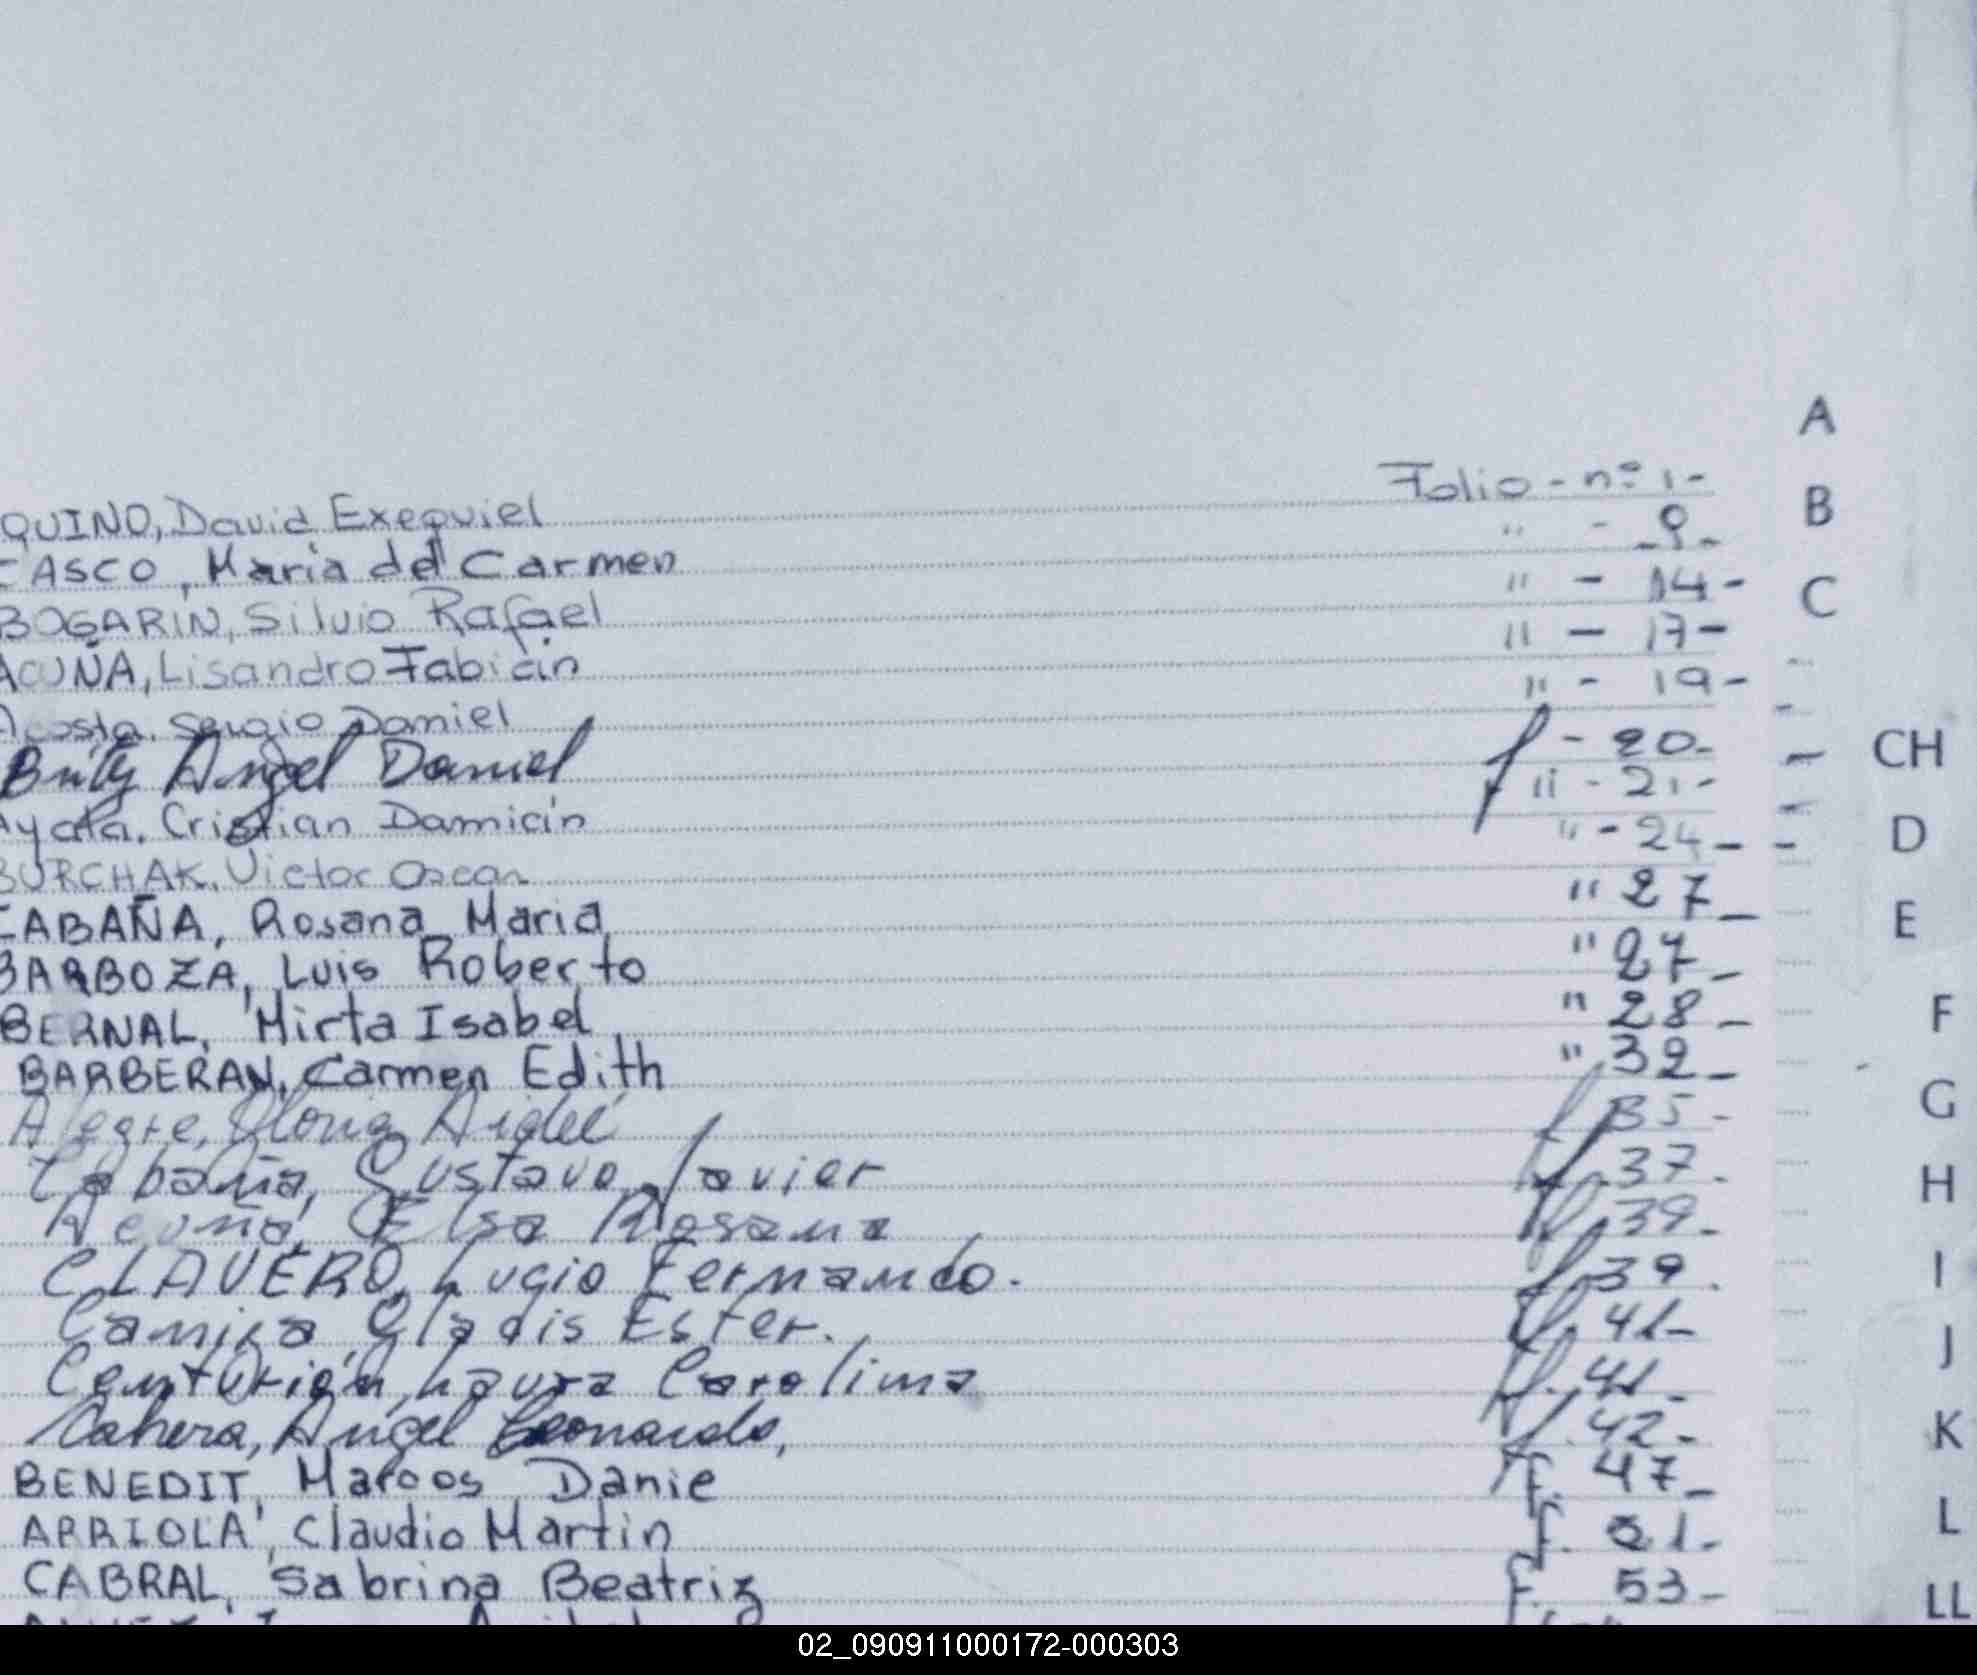 QUINO, David Exequiel Folio - nº 1 -
CASCO, Maria del Carmen " - 9 -
BOGARIN, Silvio Rafael " - 14 -
ACUÑA, Lisandro Fabián " - 17 -
Acosta, Sergio Daniel " - 19 -
Angel Daniel f - 20 -
Ayala, Cristian Damián " - 21 -
BURCHAK, Victor Oscar " - 24 -
CABAÑA, Rosana Maria " 27 -
BARBOZA, Luis Roberto " 27 -
BERNAL, Mirta Isabel " 28 -
BARBERAN, Carmen Edith " 32 -
Alegre, Gloria Aidé f 35 -
Cabaña, Gustavo Javier f. 37 -
Acuña, Elsa Rosana f. 39 -
CLAVERO, Lucio Fernando. f. 39 .
Gladis Ester. f. 41 -
Centurión, Laura Carolina f. 41 -
Cabrera, Angel Leonardo, f. 42 -
BENEDIT, Marcos Danie f. 47 -
ARRIOLA, Claudio Martin f. 51 -
CABRAL, Sabrina Beatriz f. 53 -
A
B
C
CH
D
E
F
G
H
I
J
K
L
LL
02_090911000172-000303